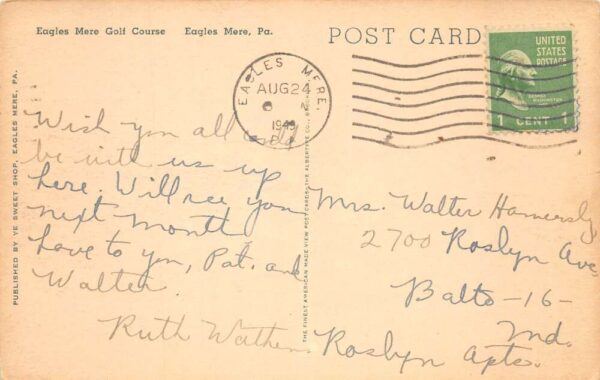 Eagles Mere Golf Course Eagles Mere, Pa.
POST CARD
UNITED
STATES
POSTAGE
GEORGE
WASHINGTON
1 CENT 1
EAGLES MERE
AUG 24
1949
PA.
PUBLISHED BY YE SWEET SHOP, EAGLES MERE, PA.
THE FINEST AMERICAN MADE VIEW POST CARDS, THE ALBERTYPE CO.,
Wish you all could
be with us up
here. Will see you
next month
Love to you, Pat. and
Walter.
Ruth
Mrs. Walter Hamersly
2700 Roslyn Ave
Balto-16-
Md.
Roslyn Apts.